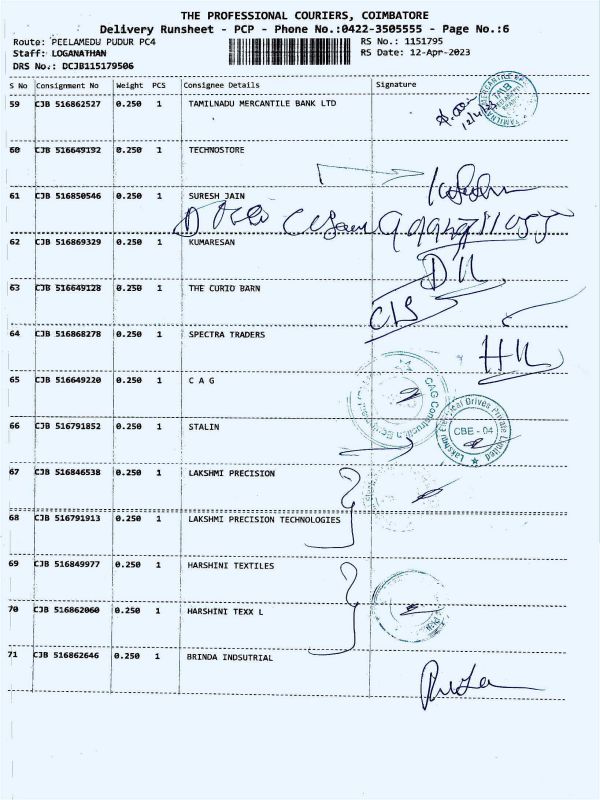 THE PROFESSIONAL COURIERS, COIMBATORE
Delivery Runsheet - PCP - Phone No.:0422-3505555 - Page No.:6
Route: PEELAMEDU PUDUR PC4 RS No.: 1151795
Staff: LOGANATHAN RS Date: 12-Apr-2023
DRS No.: DCJB115179506
S No Consignment No Weight PCS Consignee Details Signature
59 CJB 516862527 0.250 1 TAMILNADU MERCANTILE BANK LTD
12/4/23
TMB
60 CJB 516649192 0.250 1 TECHNOSTORE
61 CJB 516850546 0.250 1 SURESH JAIN
62 CJB 516869329 0.250 1 KUMARESAN
63 CJB 516649128 0.250 1 THE CURIO BARN
64 CJB 516868278 0.250 1 SPECTRA TRADERS
65 CJB 516649220 0.250 1 C A G
CAG Construction
66 CJB 516791852 0.250 1 STALIN
Drives Private Limited
CBE - 04
67 CJB 516846538 0.250 1 LAKSHMI PRECISION
68 CJB 516791913 0.250 1 LAKSHMI PRECISION TECHNOLOGIES
69 CJB 516849977 0.250 1 HARSHINI TEXTILES
70 CJB 516862060 0.250 1 HARSHINI TEXX L
71 CJB 516862646 0.250 1 BRINDA INDSUTRIAL